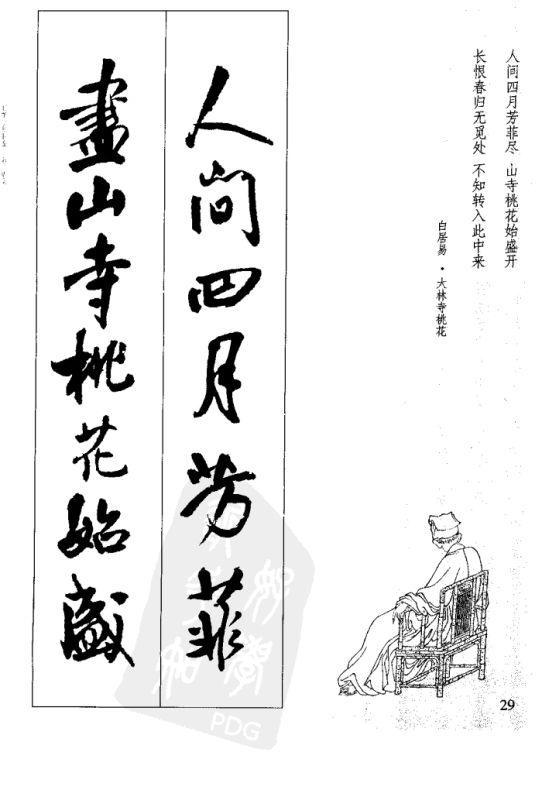 人间四月芳菲尽 · 山寺桃花始盛开
长恨春归无觅处 不知转入此中来
白居易 · 大林寺桃花
人间四月芳菲
盡山寺桃花始盛
PDG
29